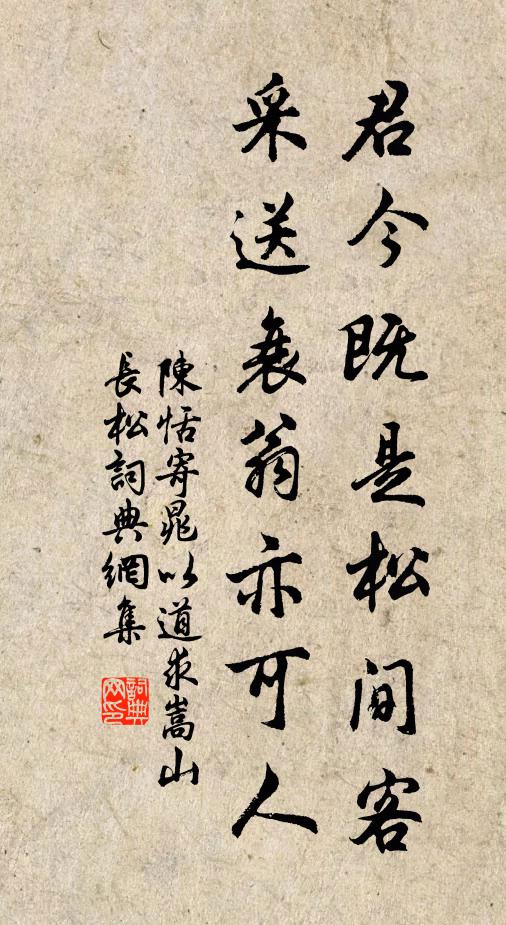 君今既是松間客
采送衰翁亦可人
陳恬寄晁以道求嵩山
長松詞典網集
詞典網印